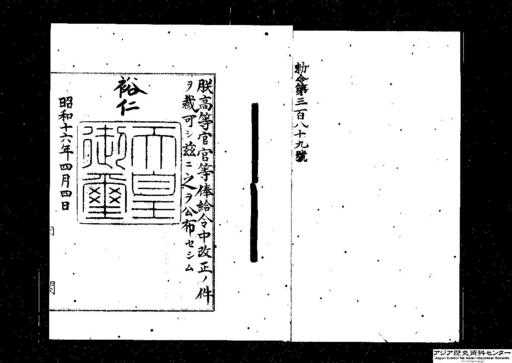 勅令第三百八十九號
朕高等官官等俸給令中改正ノ件
ヲ裁可シ茲ニ之ヲ公布セシム
裕仁
天皇御璽
昭和十六年四月四日
アジア歴史資料センター
Japan Center for Asian Historical Records